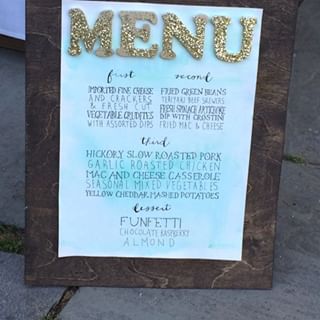 MENU
first
IMPORTED FINE CHEESE
AND CRACKERS
& FRESH CUT
VEGETABLE CRUDITES
WITH ASSORTED DIPS
second
FRIED GREEN BEANS
TERIYAKI BEEF SKEWERS
FRESH SPINACH ARTICHOKE
DIP WITH CROSTINI
FRIED MAC & CHEESE
third
HICKORY SLOW ROASTED PORK
GARLIC ROASTED CHICKEN
MAC AND CHEESE CASSEROLE
SEASONAL MIXED VEGETABLES
YELLOW CHEDDAR MASHED POTATOES
dessert
FUNFETTI
CHOCOLATE RASPBERRY
ALMOND